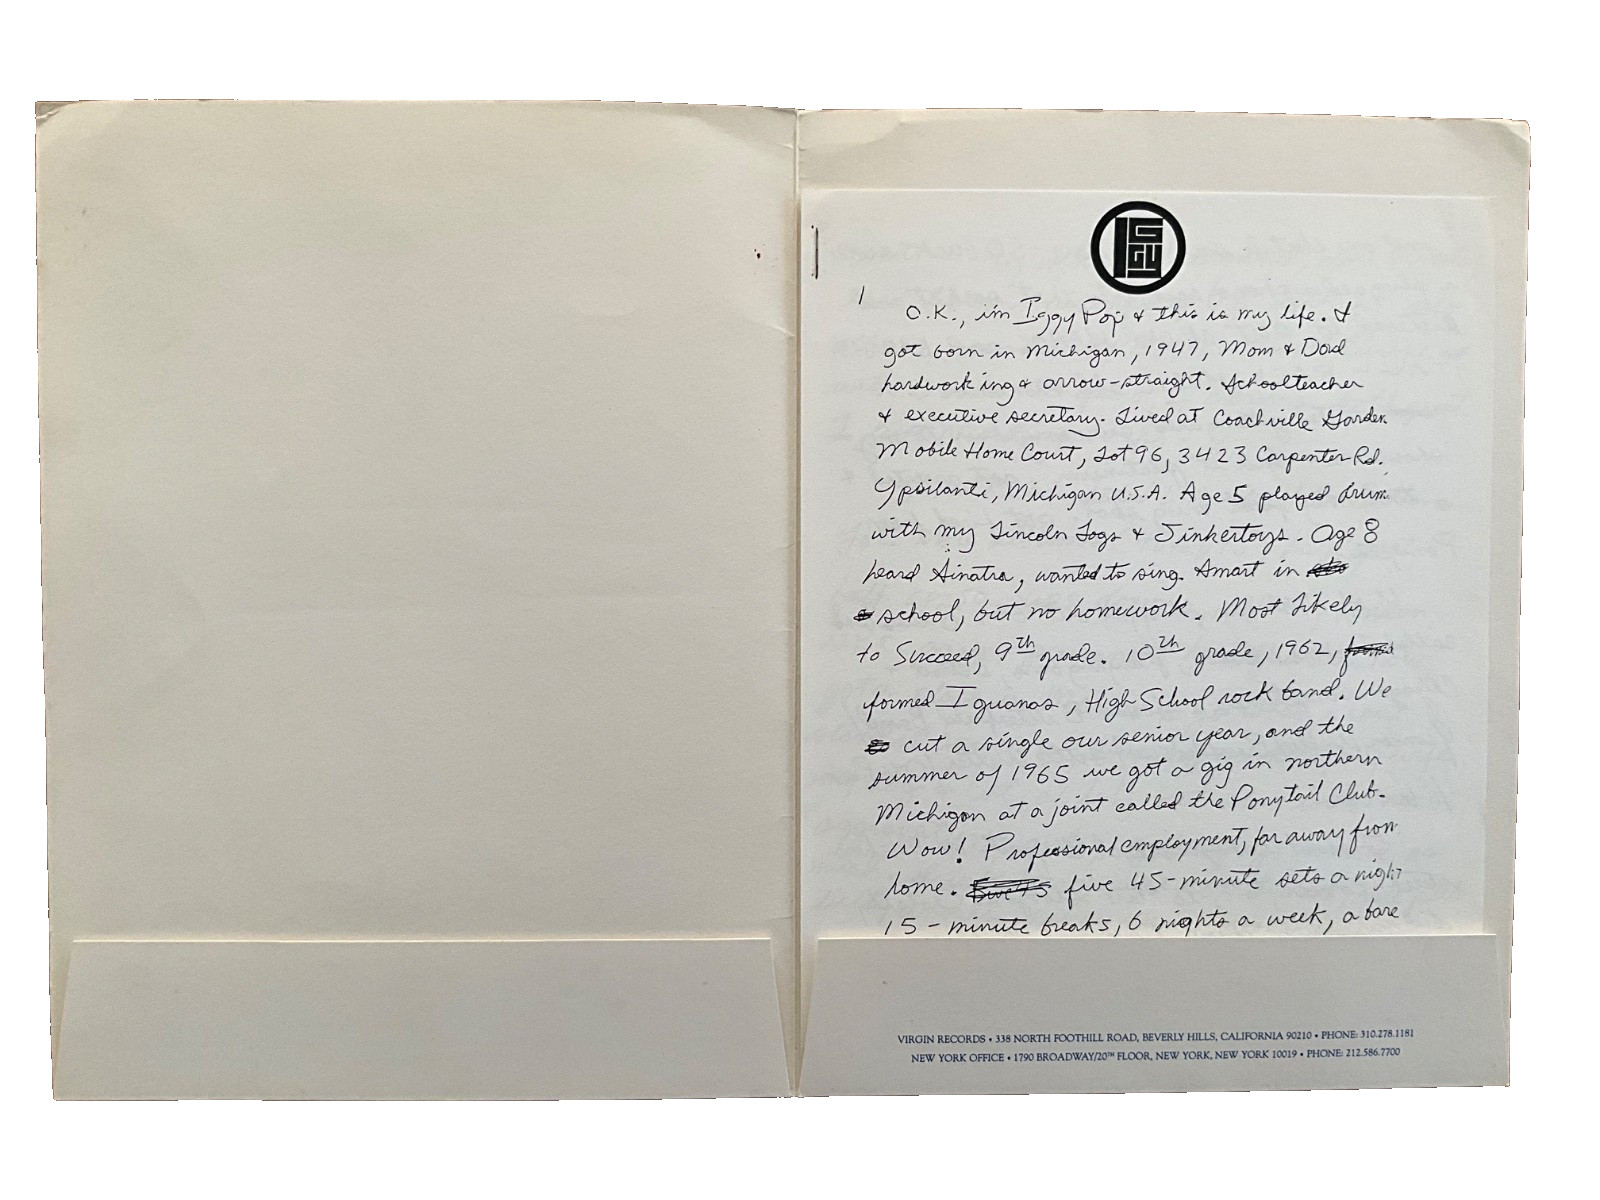 IGGY
1
O.K., i'm Iggy Pop & this is my life. I
got born in Michigan, 1947, Mom & Dad
hardworking & arrow-straight. Schoolteacher
& executive secretary. Lived at Coachville Garden
Mobile Home Court, Lot 96, 3423 Carpenter Rd.
Ypsilanti, Michigan U.S.A. Age 5 played drum
with my Lincoln Logs & Tinkertoys. Age 8
heard Sinatra, wanted to sing. Smart in
school, but no homework. Most Likely
to Succeed, 9th grade. 10th grade, 1962,
formed Iguanas, High School rock band. We
cut a single our senior year, and the
summer of 1965 we got a gig in northern
Michigan at a joint called the Ponytail Club.
Wow! Professional employment, far away from
home. five 45-minute sets a night
15-minute breaks, 6 nights a week, a bare
VIRGIN RECORDS • 338 NORTH FOOTHILL ROAD, BEVERLY HILLS, CALIFORNIA 90210 • PHONE: 310.278.1181
NEW YORK OFFICE • 1790 BROADWAY/20TH FLOOR, NEW YORK, NEW YORK 10019 • PHONE: 212.586.7700